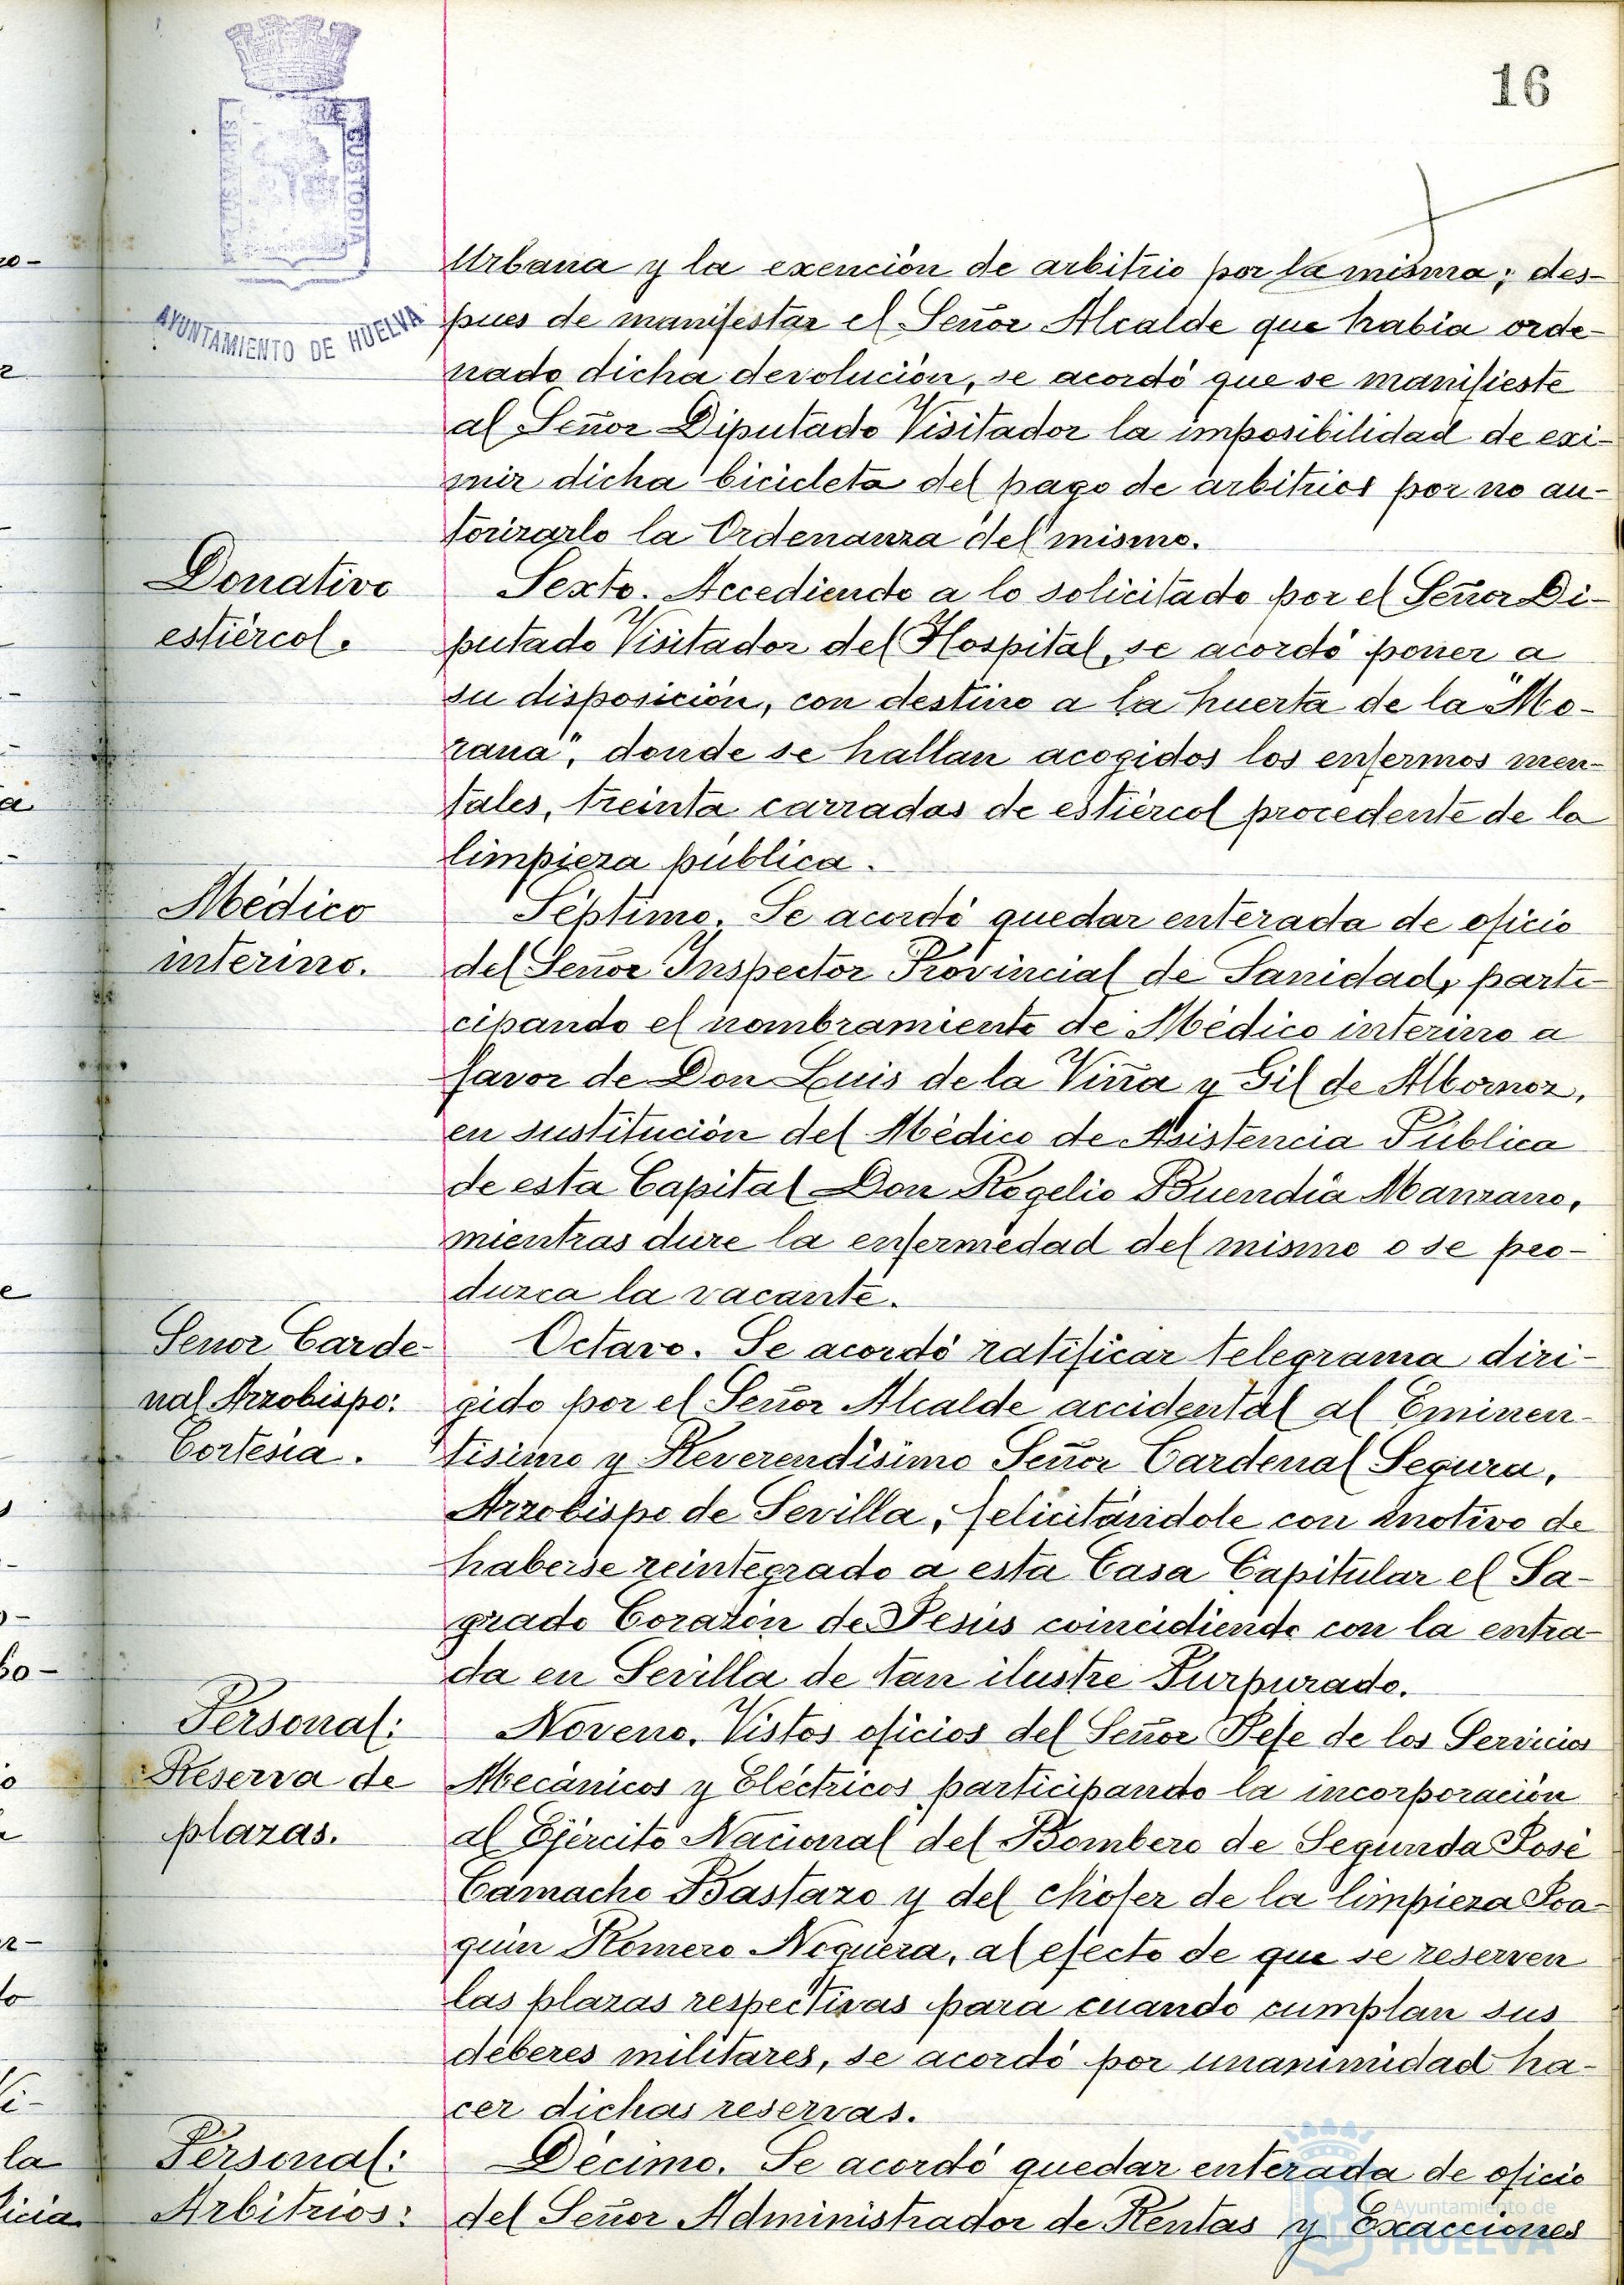 16
AYUNTAMIENTO DE HUELVA
Urbana y la exención de arbitrio por la misma; des-
pues de manifestar el Señor Alcalde que había orde-
nado dicha devolución, se acordó que se manifieste
al Señor Diputado Visitador la imposibilidad de exi-
mir dicha bicicleta del pago de arbitrios por no au-
torizarlo la Ordenanza del mismo.
Donativo
estiércol.
Sexto. Accediendo a lo solicitado por el Señor Di-
putado Visitador del Hospital, se acordó poner a
su disposición, con destino a la huerta de la "Mo-
rana", donde se hallan acogidos los enfermos men-
tales, treinta carradas de estiércol procedente de la
limpieza pública.
Médico
interino.
Séptimo. Se acordó quedar enterada de oficio
del Señor Inspector Provincial de Sanidad, parti-
cipando el nombramiento de Médico interino a
favor de Don Luis de la Viña y Gil de Albornoz,
en sustitución del Médico de Asistencia Pública
de esta Capital Don Rogelio Buendía Manzano,
mientras dure la enfermedad del mismo o se pro-
duzca la vacante.
Señor Carde-
nal Arzobispo:
Cortesía.
Octavo. Se acordó ratificar telegrama diri-
gido por el Señor Alcalde accidental al Eminen-
tísimo y Reverendísimo Señor Cardenal Segura,
Arzobispo de Sevilla, felicitándole con motivo de
haberse reintegrado a esta Casa Capitular el Sa-
grado Corazón de Jesús coincidiendo con la entra-
da en Sevilla de tan ilustre Purpurado.
Personal:
Reserva de
plazas.
Noveno. Vistos oficios del Señor Jefe de los Servicios
Mecánicos y Eléctricos participando la incorporación
al Ejército Nacional del Bombero de Segunda José
Camacho Bastazo y del chófer de la limpieza Joa-
quín Romero Noguera, al efecto de que se reserven
las plazas respectivas para cuando cumplan sus
deberes militares, se acordó por unanimidad ha-
cer dichas reservas.
Personal:
Arbitrios:
Décimo. Se acordó quedar enterada de oficio
del Señor Administrador de Rentas y Exacciones
Ayuntamiento de
HUELVA